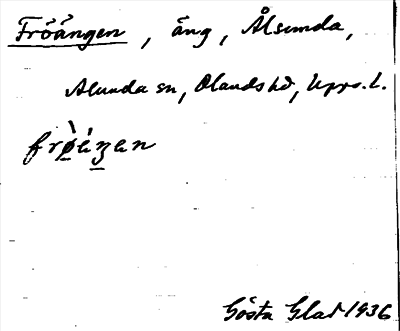 Fröängen, äng, Ålsunda,
Alunda sn, Olands hd, Upps. l.
frø̀áŋen
Gösta Glad 1936